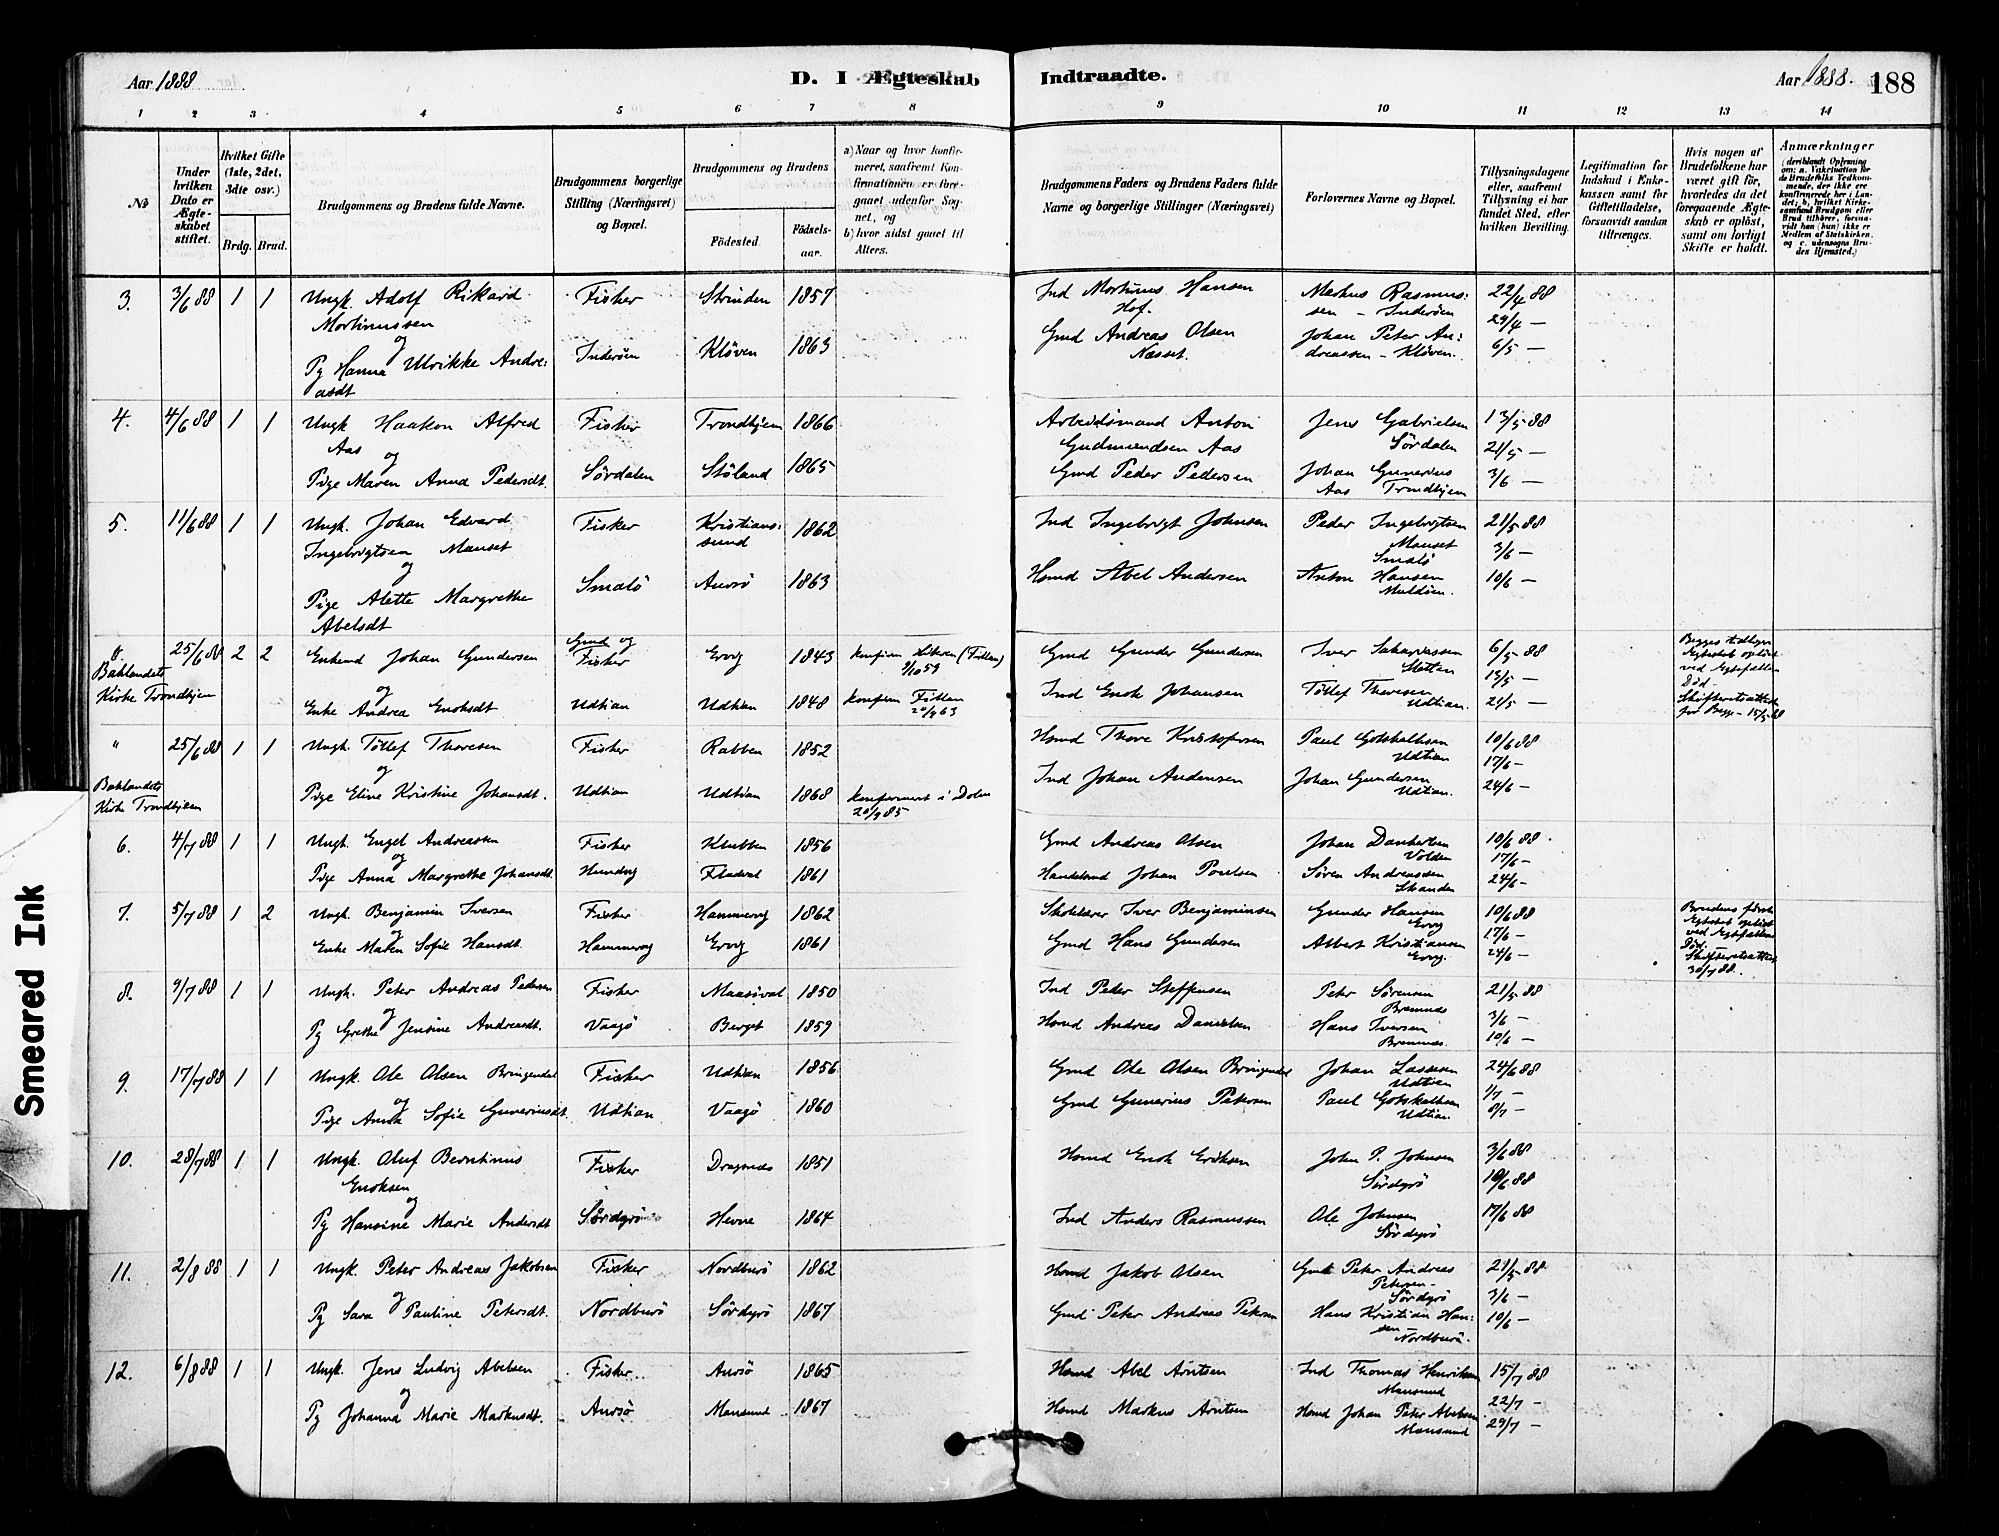 Aar 1888
D. I Ægteskab Indtraadte.
Aar 1888. 188
1 2 3 4 5 6 7 8 9 10 11 12 13 14
No
Under hvilken Dato er Ægteskabet stiftet.
Hvilket Gifte (1ste, 2det, 3dte osv.)
Brdg. Brud.
Brudgommens og Brudens fulde Navne.
Brudgommens borgerlige Stilling (Næringsvei) og Bopæl.
Brudgommens og Brudens
Födested. Födsels-aar.
a) Naar og hvor konfirmeret, saafremt Konfirmationen er foregaaet udenfor Sognet, og
b) hvor sidst gaaet til Alters.
Brudgommens Faders og Brudens Faders fulde Navne og borgerlige Stillinger (Næringsvei)
Forlovernes Navne og Bopæl.
Tillysningsdagene eller, saafremt Tillysning ei har fundet Sted, efter hvilken Bevilling.
Legitimation for Indskud i Enkekassen samt for Giftetilladelse, forsaavidt saadan tiltrænges.
Hvis nogen af Brudefolkene har været gift för, hvorledes da det foregaaende Ægteskab er oplöst, samt om lovligt Skifte er holdt.
Anmærkninger
3. 3/6 88 1 1 Ungk Adolf Rikard Fisker Strinden 1857 Ind Mortinus Hansen Markus Rasmus: 22/4 88
Mortinussen Hof. sen - Inderöen 29/4 —
og Gmd Andreas Olsen Johan Peter An: 6/5 —
Pg Hanna Ulrikke Andre: Inderöen Klöven 1863 Næsset. dreassen - Klöven.
asdt
4. 4/6 88 1 1 Ungk Haakon Alfred Fisker Trondhjem 1866 Arbeidsmand Anton Jens Gabrielsen 13/5 88
Aas og Gudmundsen Aas Sördalen 21/5 —
Pige Maren Anna Pedersdt. Sördalen Stöland 1865 Gmd Peder Pedersen Johan Gunerius 3/6 —
Aas Trondhjem
5. 11/6 88 1 1 Ungk. Johan Edvard Fisker Kristians: 1862 Ind Ingebrigt Johnsen Peder Ingebrigtsen 21/5 88
Ingebrigtsen Mauset sund Mauset 3/6 —
og Smalö
Pige Alette Margrethe Smalö Aursö 1863 Hsmd Abel Andersen Anton Hansen 10/6 —
Abelsdt
" 25/6 88 2 2 Enkemd Johan Gundersen Gmd og Fisker Ervg 1843 Gmd Gunder Gundersen Iver 6/5 88
Baklandets Kirke Trondhjem og 13/5 —
Enke Andrea Enoksdt Udtian Udtian 1848 konfirm Fillan 20/9 63 Ind Enok Johansen Töllef Thoresen Udtian. 21/5 —
ved Ægtefællens Död -
" 25/6 88 1 1 Ungk. Töllef Thoresen Fisker Rabben 1852 Hsmd Thore Kristofersen Paul Gotskalksen Udtian 10/6 88
og 17/6 —
Baklandets Kirke Trondhjem Pige Eline Kristine Johansdt. Udtian Udtian 1868 konfirmert i Dolm 20/9 85 Ind Johan Andersen Johan Gundersen Udtian. 24/6 —
6. 4/7 88 1 1 Ungk. Engel Andreassen Fisker Klubben 1856 Gmd Andreas Olsen Johan Volden 10/6 88.
og 17/6 —
Pige Anna Margrethe Johansdt. Hundvg 1861 Handelsmd Johan Poulsen Sören Andreassen 24/6 —
7. 5/7 88 1 2 Ungk. Benjamin Iversen Fisker Hammervg 1862 Skolelærer Iver Benjaminsen Gunder Hansen Ervg 10/6 88 Brudens första Ægteskab oplöst ved Ægtefællens Död. —
og 17/6 —
Enke Maren Sofie Hansdt. Hammervg Ervg 1861 Gmd Hans Gundersen Albert Kristiansen Ervg. 24/6 —
8. 9/7 88 1 1 Ungk. Peter Andreas Pedersen Fisker Maasöval 1850 Ind Peder Steffensen Peter Sörensen Bremnæs 21/5 88
og 3/6 —
Pg Grethe Jensine Andreasdt. Vaagö Berget 1859 Hsmd Andreas Danielsen Hans Iversen Bremnæs. 10/6 —
9. 17/7 88 1 1 Ungk. Ole Olsen Bringendal Fisker Udtian 1856 Gmd Ole Olsen Bringendal Johan Lassesen Udtian 24/6 88
og 1/7 —
Pige Anna Sofie Guneriusdt. Udtian Vaagö 1860 Gmd Gunerius Petersen Paul Gotskalksen Udtian. 8/7 —
10. 28/7 88 1 1 Ungk. Oluf Berntinus Fisker Dragsnæs 1851 Hsmd Enok Eriksen John P. Johnsen 3/6 88
Enoksen Sördyrö 10/6 88
og
Pg Hansine Marie Andersdt Sördyrö Hevne 1864 Ind Anders Rasmussen Ole Johnsen 17/6 88
Sördyrö
11. 2/8 88 1 1 Ungk. Peter Andreas Jakobsen Fisker Nordburö 1862 Hsmd Jakob Olsen Gmd Peter Andreas 21/5 88
og Petersen - Sördyrö 3/6 —
Pg Sara Pauline Petersdt. Nordburö Sördyrö 1867 Gmd Peter Andreas Petersen Hans Kristian Han: 10/6 —
sen - Nordburö.
12. 6/8 88 1 1 Ungk. Jens Ludvig Abelsen Fisker. Aursö 1865 Hsmd Abel Arntsen Ind Thomas Henriksen 15/7 88
og Mausund 22/7 —
Pg Johanna Marie Markusdt. Aursö Mausund 1867 Hsmd Markus Arntsen Hsmd Johan Peter Abelsen 29/7 —
Mausund
Smeared Ink